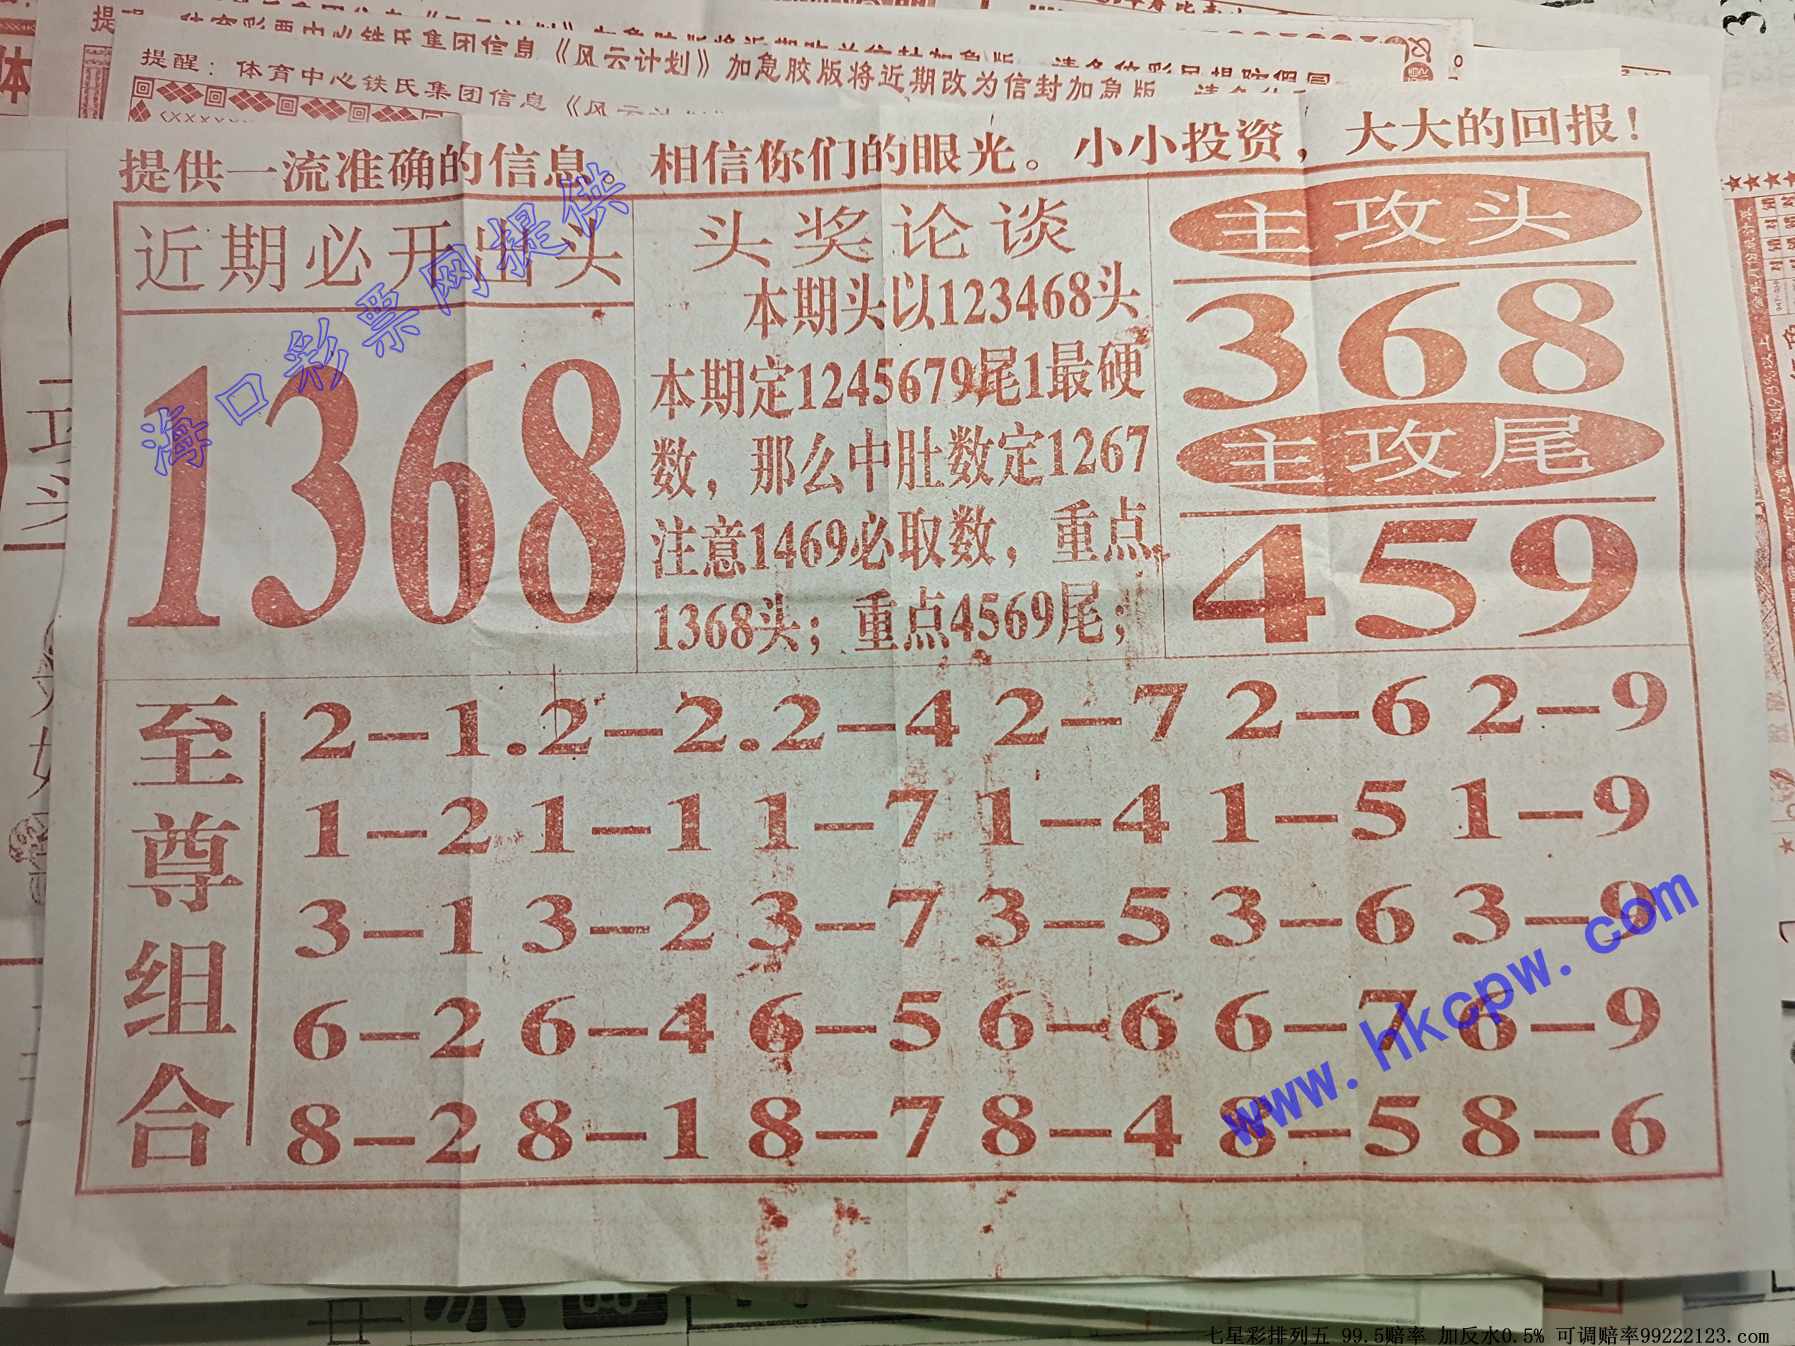 提醒：体育中心铁氏集团信息《风云计划》加急胶版将近期改为信封加急版
提供一流准确的信息 相信你们的眼光。小小投资，大大的回报！
近期必开出头
1368
头奖论谈
本期头以123468头
本期定1245679尾1最硬
数，那么中肚数定1267
注意1469必取数，重点
1368头；重点4569尾；
主攻头
368
主攻尾
459
至尊组合
2-1.2-2.2-4 2-7 2-6 2-9
1-2 1-1 1-7 1-4 1-5 1-9
3-1 3-2 3-7 3-5 3-6 3-9
6-2 6-4 6-5 6-6 6-7 6-9
8-2 8-1 8-7 8-4 8-5 8-6
海口彩票网提供
www.hkcpw.com
七星彩排列五 99.5赔率 加反水0.5% 可调赔率99222123.com